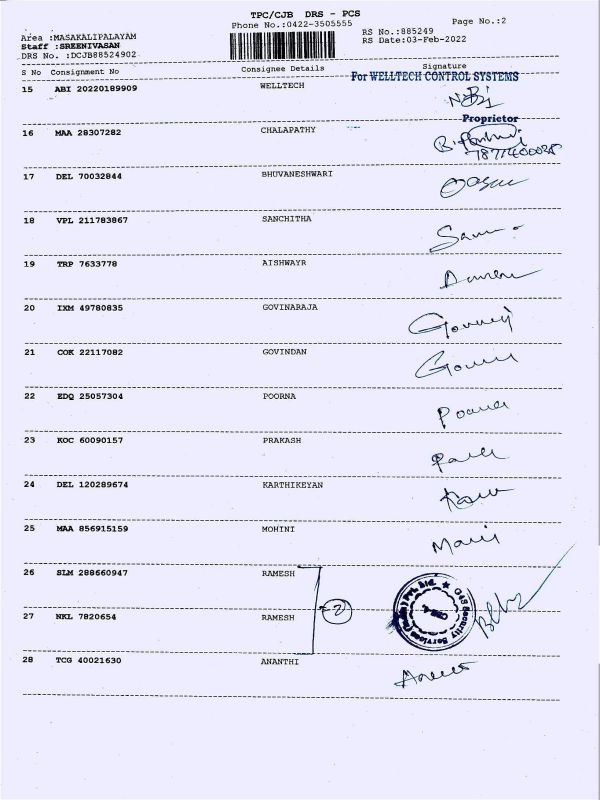 TPC/CJB DRS - PCS
Phone No.:0422-3505555 Page No.:2
Area :MASAKALIPALAYAM RS No.:885249
Staff :SREENIVASAN RS Date:03-Feb-2022
DRS No. :DCJB88524902
S No Consignment No Consignee Details Signature
For WELLTECH CONTROL SYSTEMS
15 ABI 20220189909 WELLTECH
Proprietor
16 MAA 28307282 CHALAPATHY
17 DEL 70032844 BHUVANESHWARI
18 VPL 211783867 SANCHITHA
19 TRP 7633778 AISHWAYR
20 IXM 49780835 GOVINARAJA
21 COK 22117082 GOVINDAN
22 EDQ 25057304 POORNA
23 KOC 60090157 PRAKASH
24 DEL 120289674 KARTHIKEYAN
25 MAA 856915159 MOHINI
26 SLM 288660947 RAMESH
G4S Security Services (India) Pvt. Ltd.
27 NKL 7820654 RAMESH
28 TCG 40021630 ANANTHI